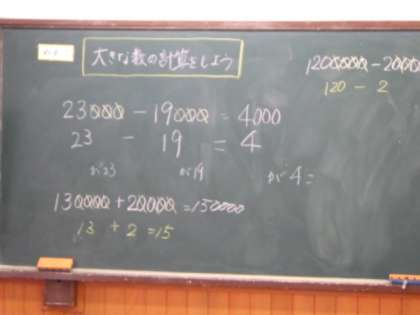 大きな数の計算をしよう
23000 - 19000 = 4000
23 - 19 = 4
が23 が19 が4=
130000 + 20000 = 150000
13 + 2 = 15
1200000 - 20000
120 - 2